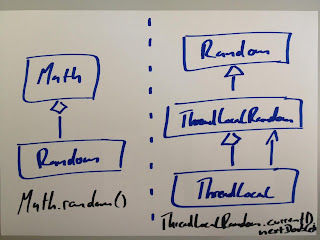 Math
Random
Math.random()
Random
ThreadLocalRandom
ThreadLocal
ThreadLocalRandom.current()